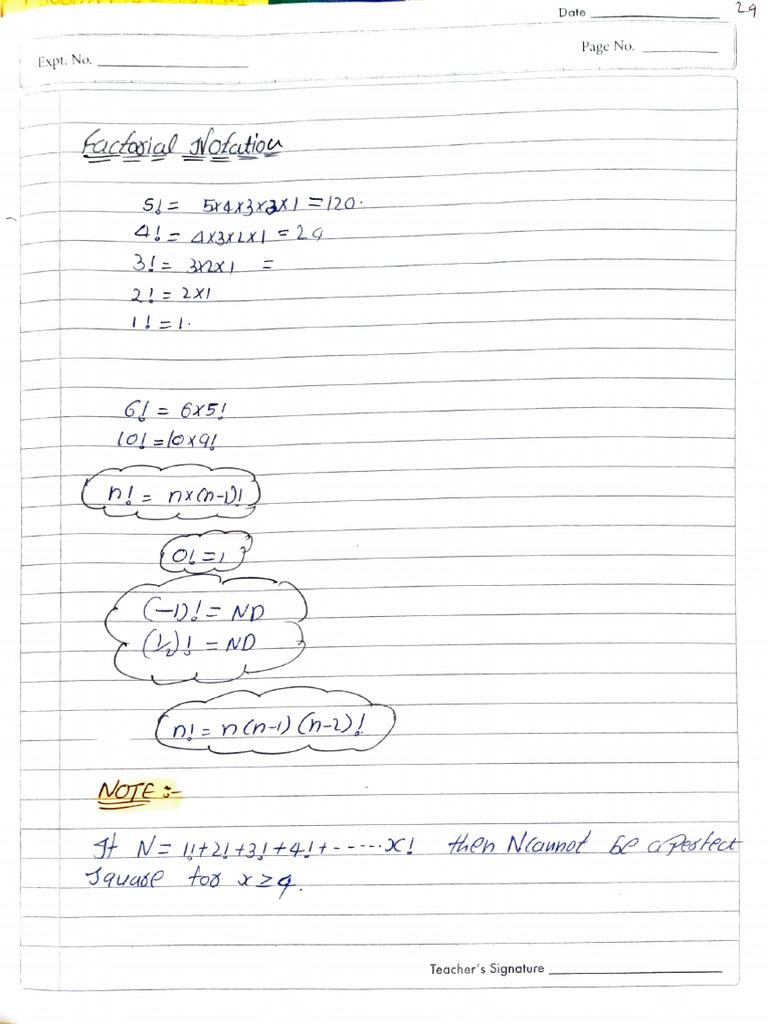 Date ____________ 29
Expt. No. ____________ Page No. ____________
Factorial Notation
5! = 5x4x3x2x1 = 120.
4! = 4x3x2x1 = 24
3! = 3x2x1 =
2! = 2x1
1! = 1.
6! = 6x5!
10! = 10x9!
n! = nx(n-1)!
0! = 1
(-1)! = ND
(1/2)! = ND
n! = n(n-1)(n-2)!
NOTE :-
If N = 1!+2!+3!+4!+-----x! then N cannot be a perfect
square for x ≥ 4.
Teacher's Signature ____________